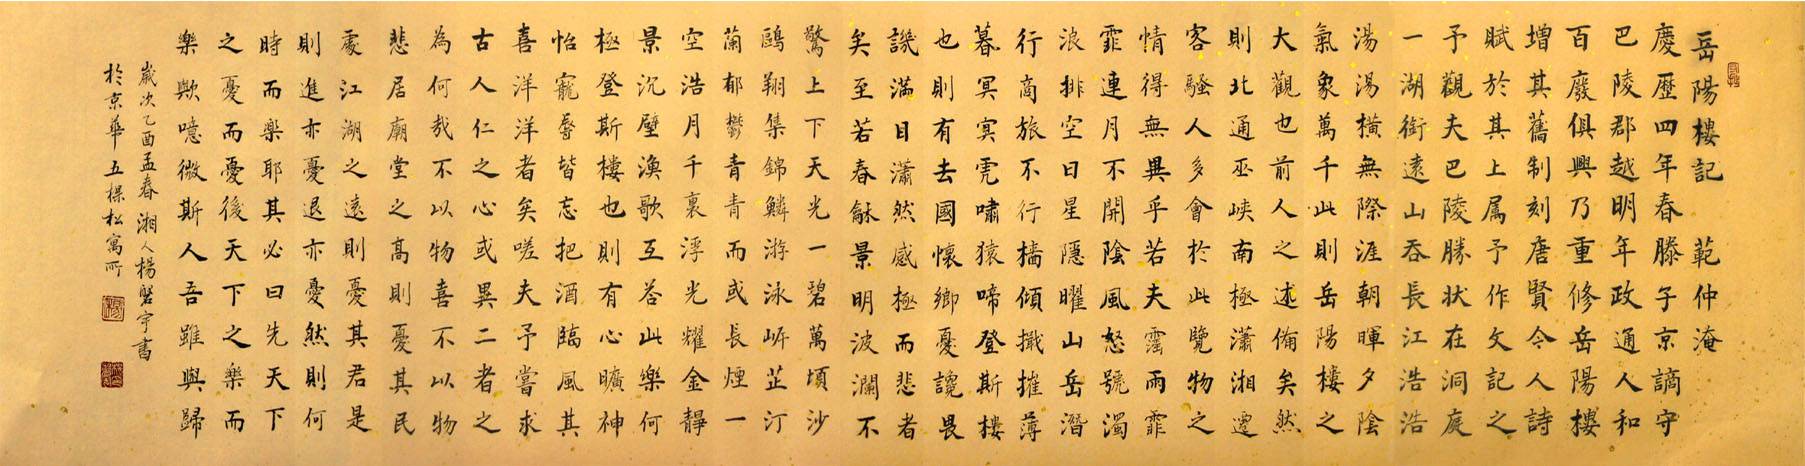 岳陽樓記 範仲淹
慶歷四年春滕子京謫守
巴陵郡越明年政通人和
百廢俱興乃重修岳陽樓
增其舊制刻唐賢令人詩
賦於其上属予作文記之
予觀夫巴陵勝状在洞庭
一湖銜遠山吞長江浩浩
湯湯橫無際涯朝暉夕陰
氣象萬千此則岳陽樓之
大觀也前人之述備矣然
則北通巫峽南極瀟湘遷
客騷人多會於此覽物之
情得無異乎若夫霪雨霏
霏連月不開陰風怒號濁
浪排空日星隱曜山岳潛
行商旅不行檣傾檝摧薄
暮冥冥虎嘯猿啼登斯樓
也則有去國懷鄉憂讒畏
譏滿目瀟然感極而悲者
矣至若春龢景明波瀾不
驚上下天光一碧萬頃沙
鷗翔集錦鱗游泳岸芷汀
蘭郁鬱青青而或長煙一
空浩月千裏浮光耀金靜
景沉壁漁歌互荅此樂何
極登斯樓也則有心曠神
怡寵辱皆忘把酒臨風其
喜洋洋者矣嗟夫予嘗求
古人仁之心或異二者之
為何哉不以物喜不以物
悲居廟堂之高則憂其民
處江湖之遠則憂其君是
則進亦憂退亦憂然則何
時而樂耶其必曰先天下
之憂而憂後天下之樂而
樂歟噫微斯人吾雖與歸
歲次乙酉孟春湘人楊磐宇書
於京華五棵松寓所